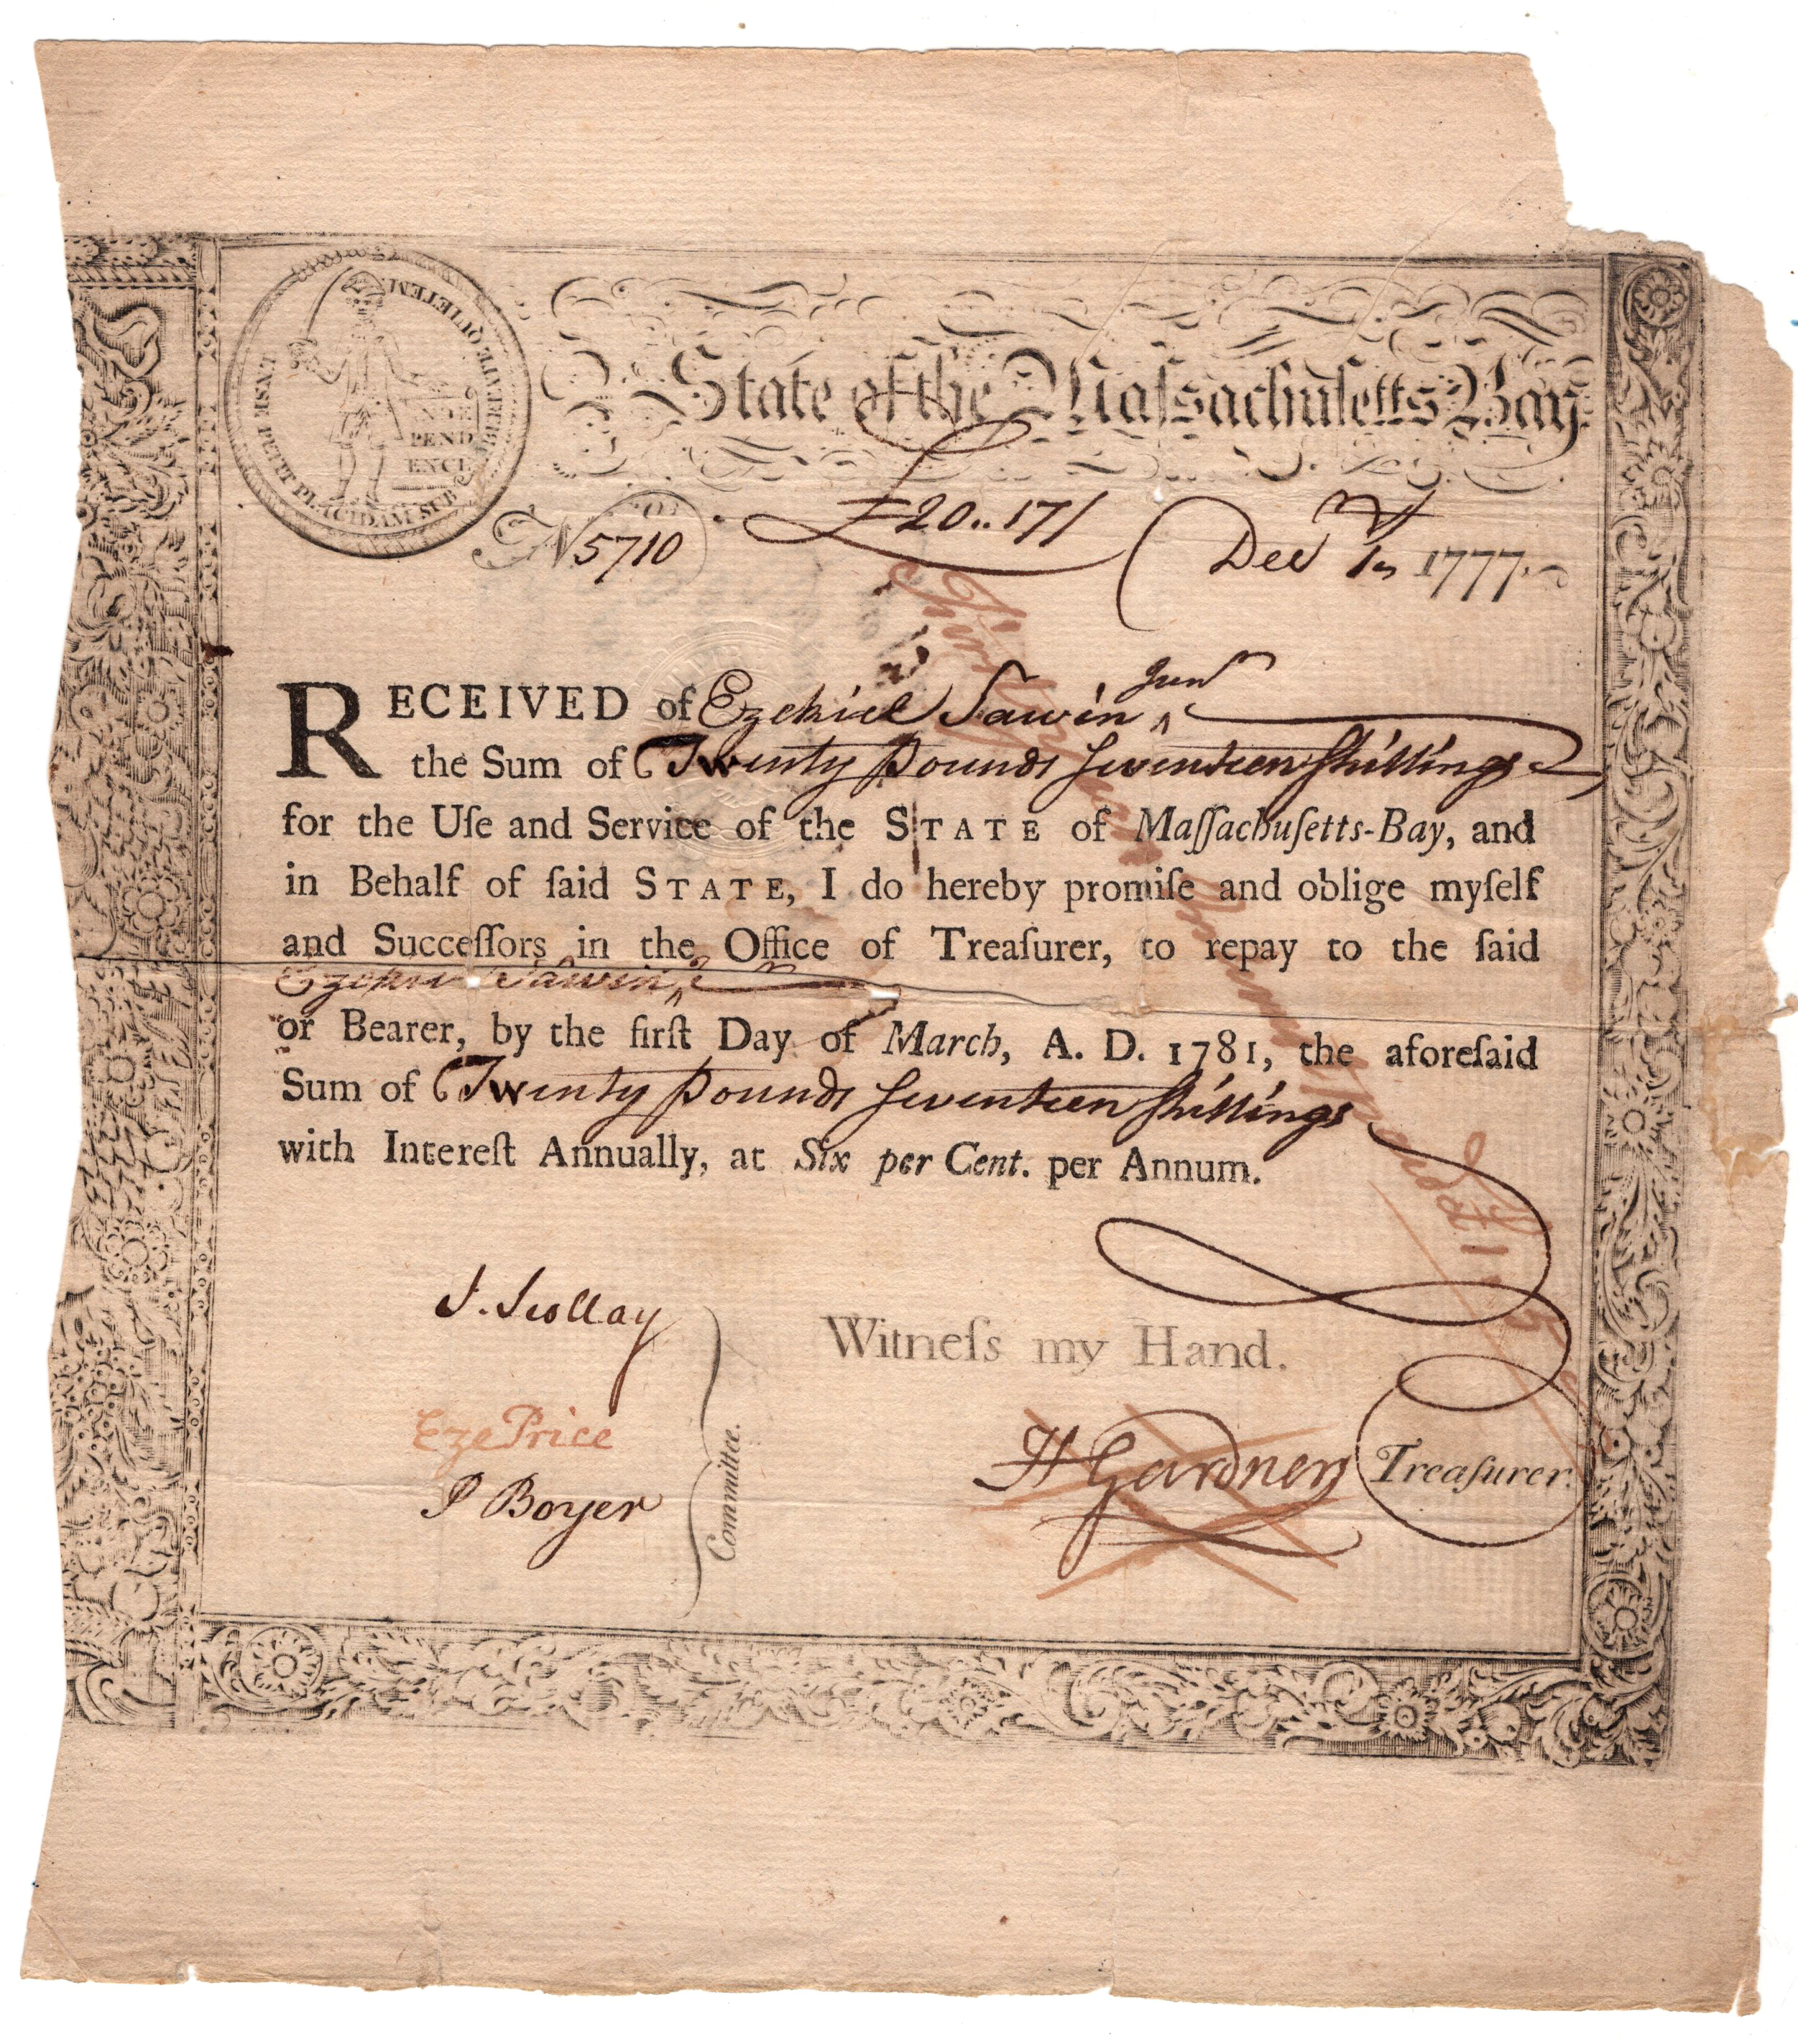 State of the Maſsachuſetts Bay.
ENSE PETIT PLACIDAM SUB LIBERTATE QUIETEM
INDE
PEND
ENCE
No. 5710
£20..17/
Decr 1st 1777.
RECEIVED of Ezekiel Sawin Junr
the Sum of Twenty Pounds Seventeen Shillings
for the Uſe and Service of the STATE of Maſſachuſetts-Bay, and
in Behalf of ſaid STATE, I do hereby promiſe and oblige myſelf
and Succeſſors in the Office of Treaſurer, to repay to the ſaid
Ezekiel Sawin
or Bearer, by the firſt Day of March, A. D. 1781, the aforeſaid
Sum of Twenty Pounds Seventeen Shillings
with Intereſt Annually, at Six per Cent. per Annum.
J. Scollay
Eze Price
P Boyer
Committee.
Witneſs my Hand.
H Gardner Treaſurer.